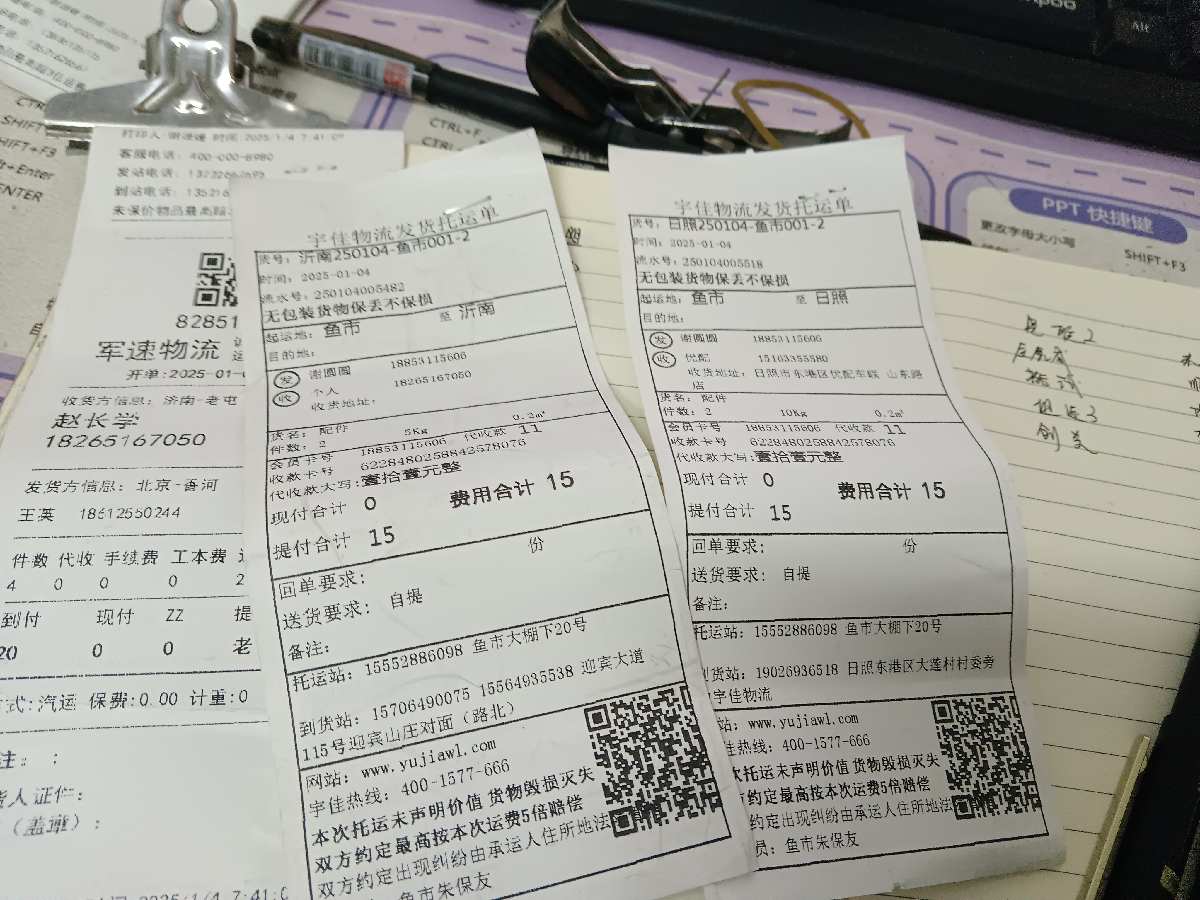 客服电话: 400-000-8980
发站电话:
到站电话: 13521
未保价物品最高赔
82851
军速物流
开单:2025-01-0
收货方信息: 济南-老屯
赵长学
18265167050
发货方信息: 北京-香河
王英 18612550244
件数 代收 手续费 工本费
4 0 0 0 2
到付 现付 ZZ 提
20 0 0 老
式:汽运 保费:0.00 计重:0
注: ;
货人证件:
(盖章):
2025/1/4 7:41:0
宇佳物流发货托运单
货号: 沂南250104-鱼市001-2
时间: 2025-01-04
流水号: 250104005482
无包装货物保丢不保损
起运地: 鱼市 至 沂南
目的地:
发 谢圆圆 18853115606
收 个人 18265167050
收货地址:
货名: 配件
件数: 2 5Kg 0.2m³
会员卡号 18853115606 代收款 11
收款卡号 6228480258842578076
代收款大写: 壹拾壹元整
现付合计 0 费用合计 15
提付合计 15
回单要求: 份
送货要求: 自提
备注:
托运站: 15552886098 鱼市大棚下20号
到货站: 15706490075 15564935538 迎宾大道
115号迎宾山庄对面(路北)
网站: www.yujiawl.com
宇佳热线: 400-1577-666
本次托运未声明价值 货物毁损灭失
双方约定最高按本次运费5倍赔偿
双方约定出现纠纷由承运人住所地法
鱼市朱保友
宇佳物流发货托运单
货号: 日照250104-鱼市001-2
时间: 2025-01-04
流水号: 250104005518
无包装货物保丢不保损
起运地: 鱼市 至 日照
目的地:
发 谢圆圆 18853115606
收 优配 15163355580
收货地址: 日照市东港区优配车联 山东路
店
货名: 配件
件数: 2 10Kg 0.2m³
会员卡号 18853115606 代收款 11
收款卡号 6228480258842578076
代收款大写: 壹拾壹元整
现付合计 0 费用合计 15
提付合计 15
回单要求: 份
送货要求: 自提
备注:
托运站: 15552886098 鱼市大棚下20号
到货站: 19026936518 日照东港区大莲村村委旁
宇佳物流
站: www.yujiawl.com
佳热线: 400-1577-666
次托运未声明价值 货物毁损灭失
方约定最高按本次运费5倍赔偿
约定出现纠纷由承运人住所地法
员: 鱼市朱保友
PPT 快捷键
更改字母大小写
SHIFT+F3
CTRL+F
SHIFT+F3
Alt+Enter
ENTER
Alt